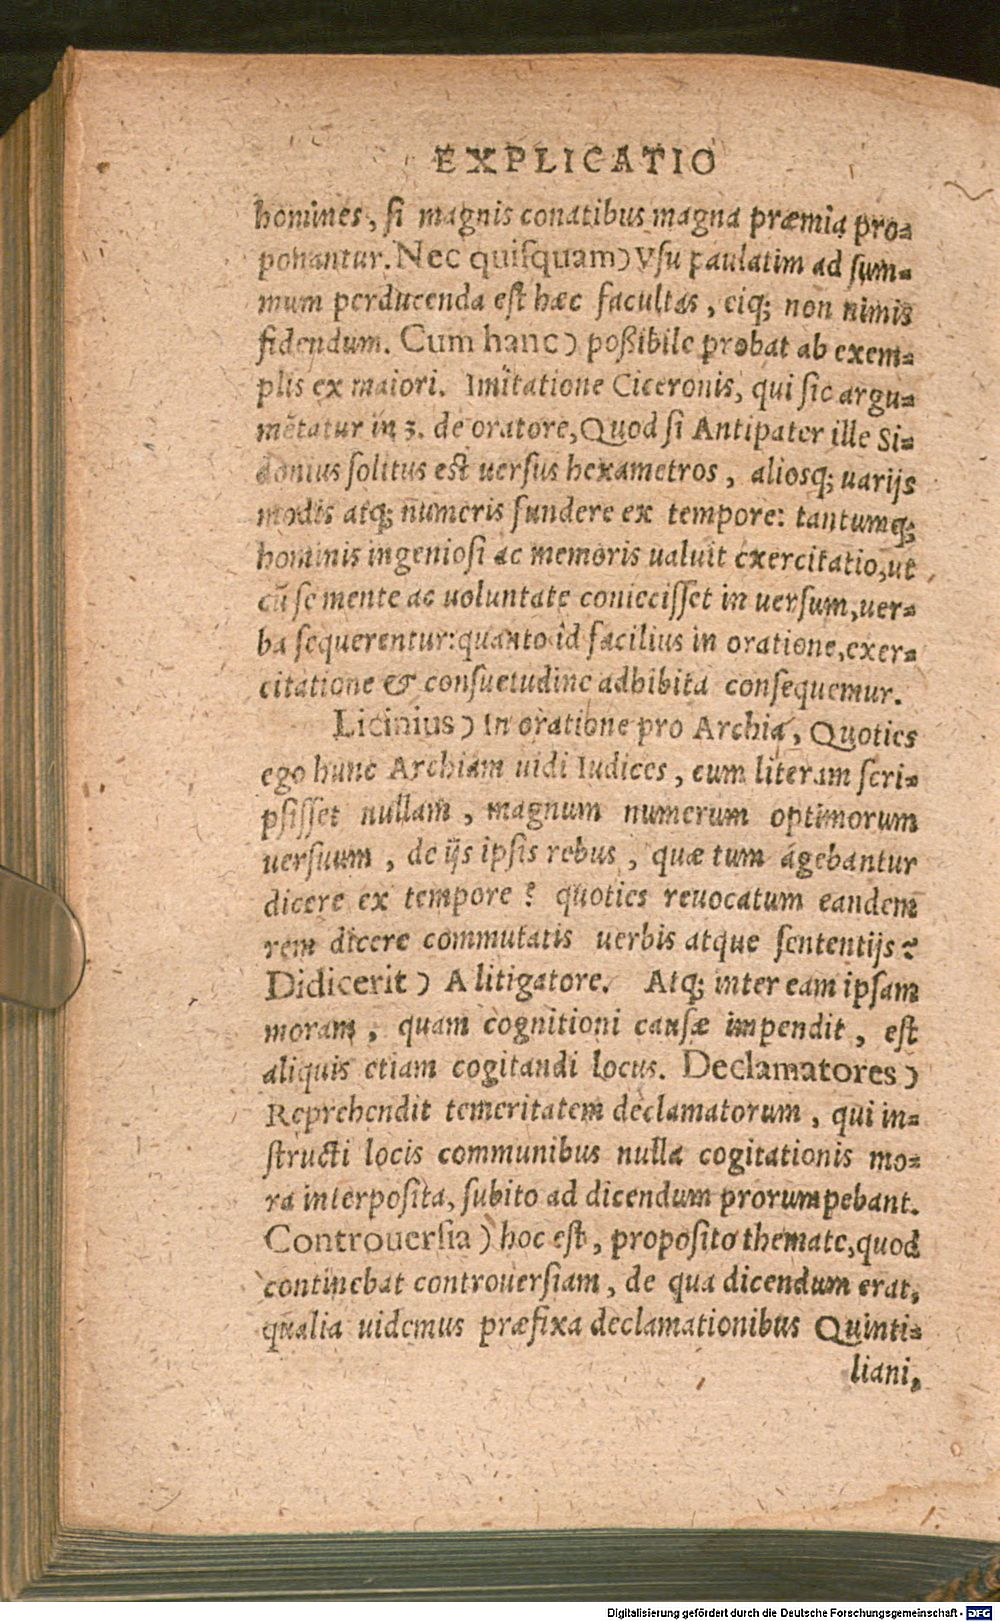 EXPLICATIO
homines, si magnis conatibus magna præmia pro-
ponantur. Nec quisquam) Vsu paulatim ad sum-
mum perducenda est hæc facultas, eiq; non nimis
fidendum. Cum hanc) poßibile probat ab exem-
plis ex maiori. Imitatione Ciceronis, qui sic argu-
mētatur in 3. de oratore, Quod si Antipater ille Si-
donius solitus est uersus hexametros, aliosq; uarijs
modis atq; numeris fundere ex tempore: tantumq;
hominis ingeniosi ac memoris ualuit exercitatio, ut
cū se mente ac uoluntate coniecisset in uersum, uer-
ba sequerentur: quanto id facilius in oratione, exer-
citatione & consuetudine adhibita consequemur.
Licinius) In oratione pro Archia, Quoties
ego hunc Archiam uidi Iudices, cum literam scri-
psisset nullam, magnum numerum optimorum
uersuum, de ijs ipsis rebus, quæ tum agebantur
dicere ex tempore? quoties reuocatum eandem
rem dicere commutatis uerbis atque sententijs?
Didicerit) A litigatore. Atq; inter eam ipsam
moram, quam cognitioni causæ impendit, est
aliquis etiam cogitandi locus. Declamatores)
Reprehendit temeritatem declamatorum, qui in-
structi locis communibus nulla cogitationis mo-
ra interposita, subito ad dicendum prorumpebant.
Controuersia) hoc est, proposito themate, quod
continebat controuersiam, de qua dicendum erat,
qualia uidemus præfixa declamationibus Quinti-
liani,
Digitalisierung gefördert durch die Deutsche Forschungsgemeinschaft - DFG